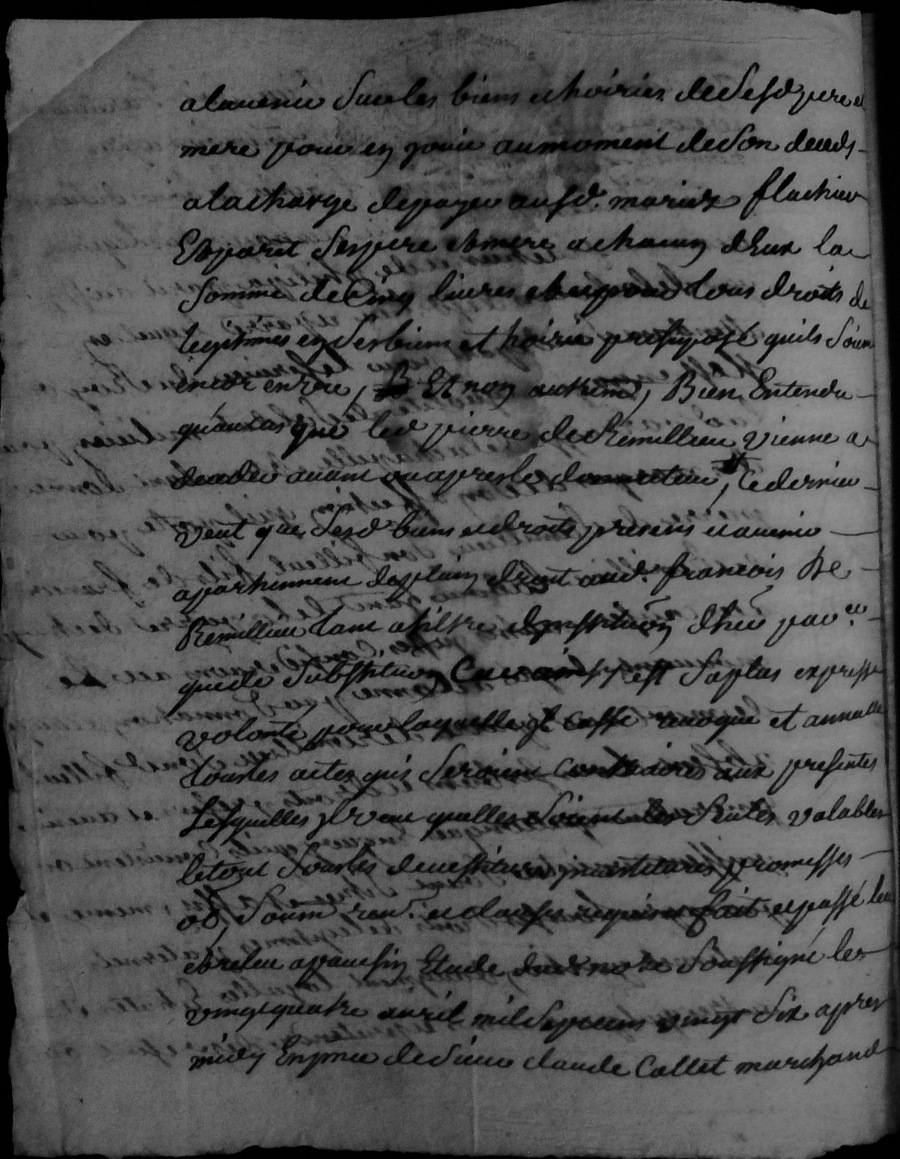 alauenir Surles biens ethoiries deSesd pere et
mere pour en jouir aumoment deSon deceds
alacharge depayer ausd. mariez flachier
Esparit Sespere etmere achacun dEux la
Somme deCinq liures etcepour tous droits de
legitimes enSesbiens et hoirie presuposé quils Soient
encor envie, Et non autremt, Bien Entendu
quaucas que led pierre deRemillieu vienne a
deceder auant ouapresle donnateur, Cedernier
veut que Sesd biens etdroits presens etauenir
apartiennent deplain droit aud. francois De
Remillieu tant atiltre dynstitution dhers
quede Substitution, Car ainsy est Saplus expresse
volonté pour laquelle jl casse reuoque et annulle
toustes actes quy Seroient contraires aux presentes
Lesquelles jl veut quelles Soient les Seules valables
letout Soubs deuestiture inuestiture, promesses
ob, Soum, ren. etclauses requises fait etpassé leu
etreleu apaursin Etude dud nore Soussigné le
vingtquatre auril milSeptcens vingt Six apres
midy Enpnce deSieur claude Collet marchand